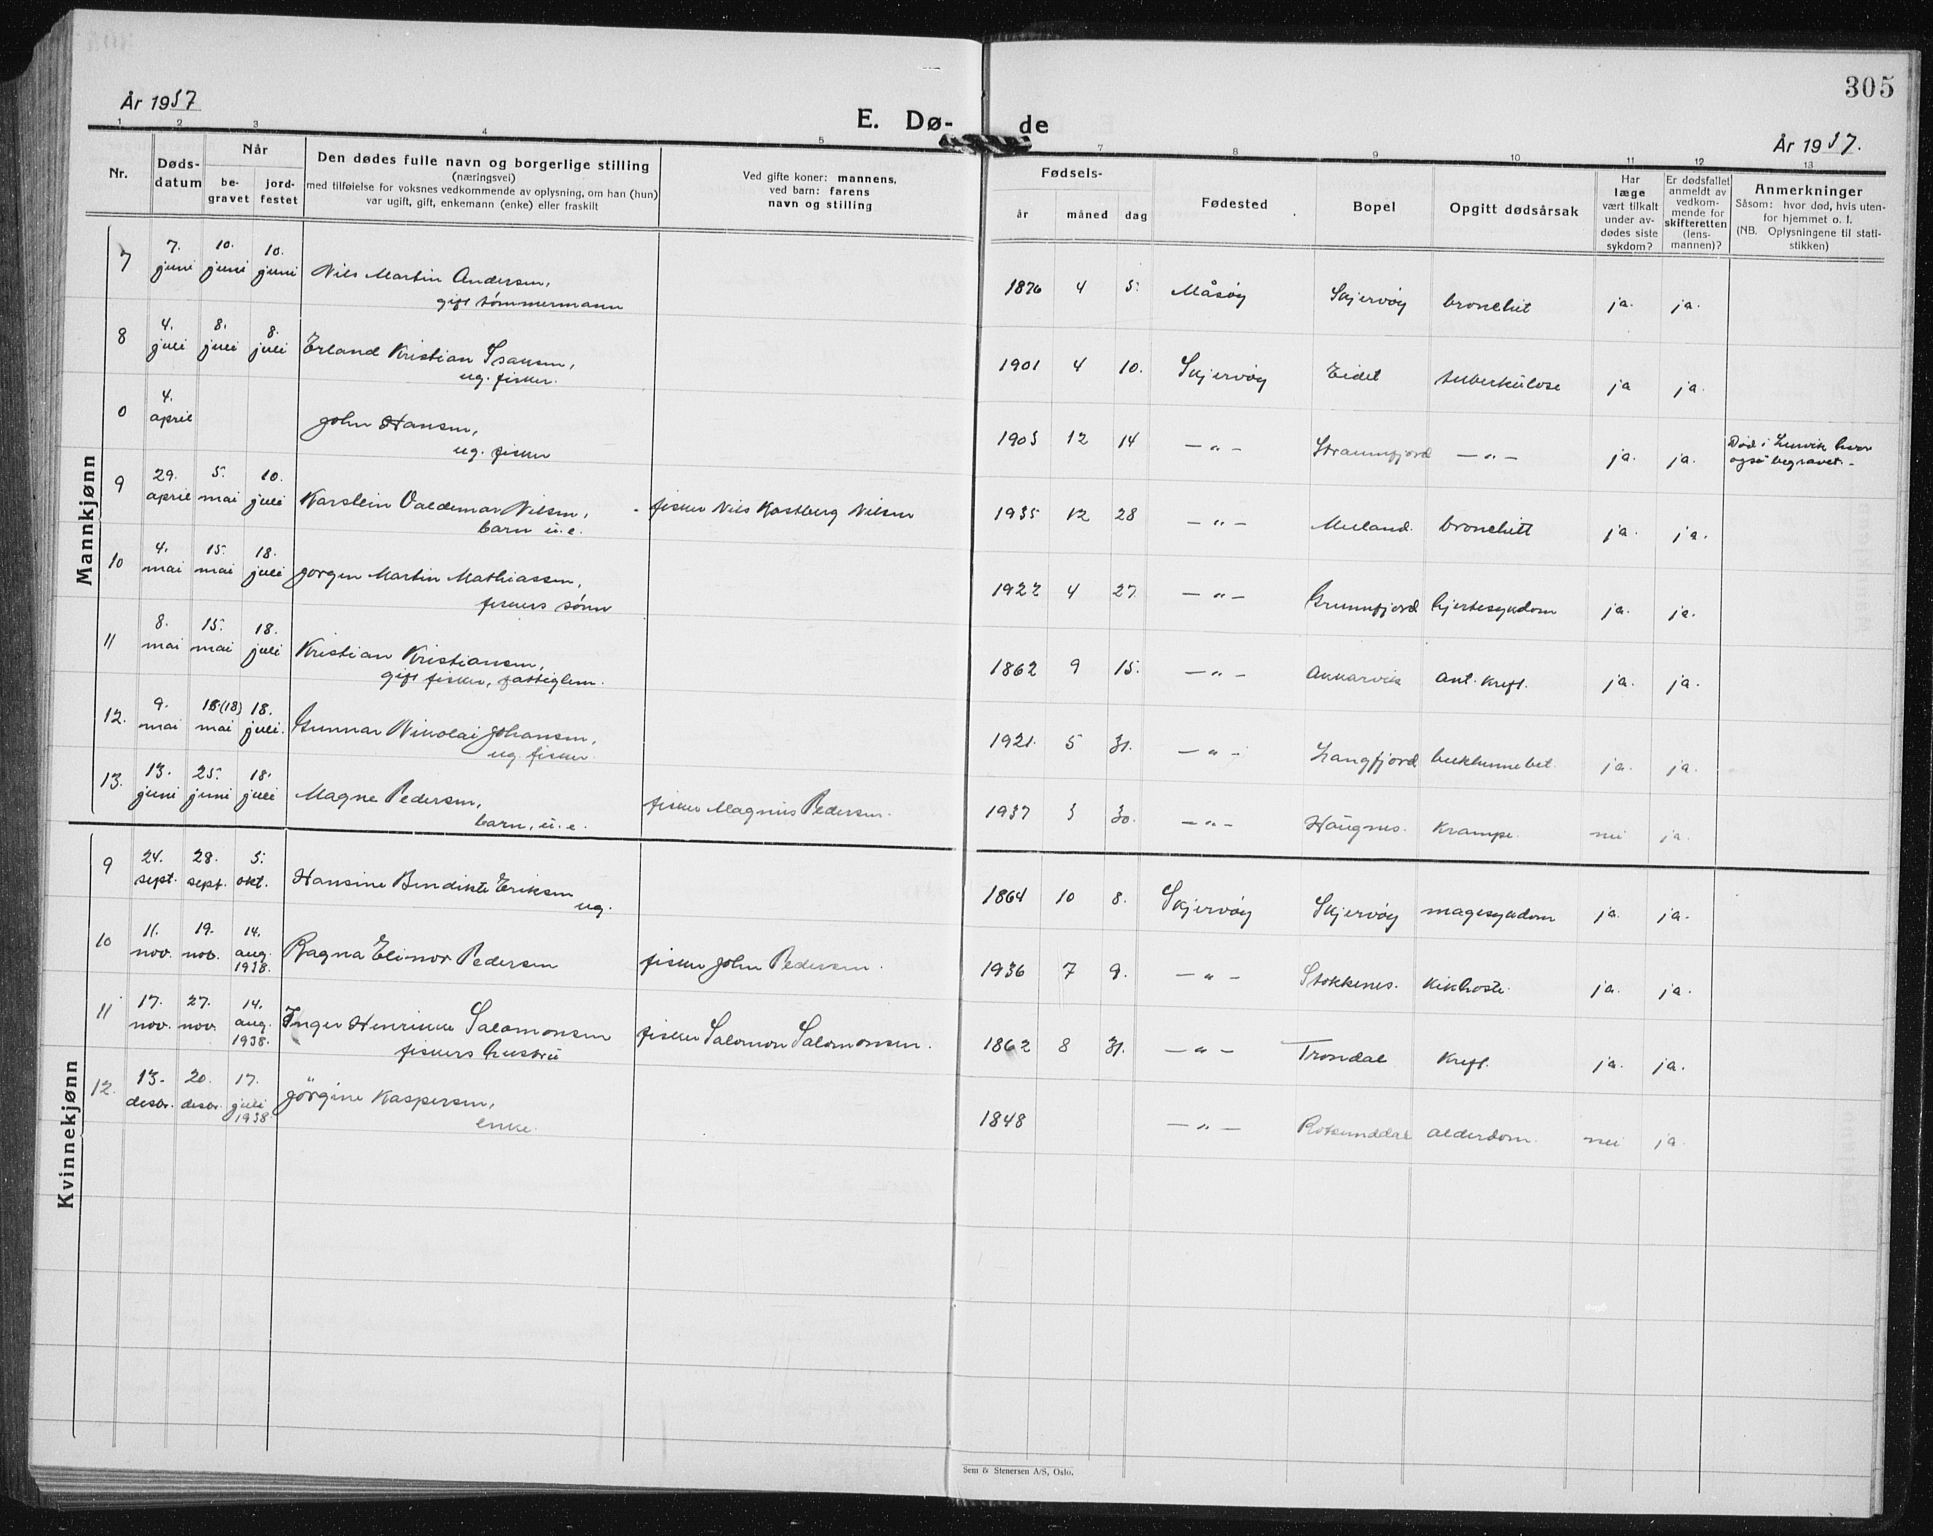 305
År 1937
E. Dø-
de
År 1937.
1 2 3 4 5
7 8 9 10 11 12 13
Nr.
Døds-
datum
Når
be-
gravet
jord-
festet
Den dødes fulle navn og borgerlige stilling
(næringsvei)
med tilføielse for voksnes vedkommende av oplysning, om han (hun)
var ugift, gift, enkemann (enke) eller fraskilt
Ved gifte koner: mannens,
ved barn: farens
navn og stilling
Fødsels-
år måned dag
Fødested
Bopel
Opgitt dødsårsak
Har
læge
vært tilkalt
under av-
dødes siste
sykdom?
Er dødsfallet
anmeldt av
vedkom-
mende for
skifteretten
(lens-
mannen)?
Anmerkninger
Såsom: hvor død, hvis uten-
for hjemmet o. l.
(NB. Oplysningene til stati-
stikken)
Mannkjønn
7 7. juni 10. juni 10. juni Nils Martin Andersen, 1876 4 5. Måsøy Skjervøy bronchit ja. ja.
gift tømmermann
8 4. juli 8. juli 8. juli Erland Kristian Isaksen, 1901 4 10. Skjervøy Eidet tuberkulose ja ja.
ug. fisker.
0 4. april John Hansen, 1905 12 14 —"— Straumfjord —"— ja. ja. Død i hvor
ug. fisker også begravet.-
9 29. april 5. mai 10. juli Karstein Valdemar Nilsen, fisker Nils Kastberg Nilsen 1935 12 28 —"— Meiland. bronchitt ja. ja.
barn u.e.
10 4. mai 15. mai 18. juli Jørgen Martin Mathiassen, 1922 4 27. —"— Grunnfjord hjertesykdom ja. ja.
fiskers sønn
11 8. mai 15. mai 18. juli Kristian Kristiansen, 1862 9 15. —"— Akkarvik ant. kreft. ja. ja.
gift fisker, fattiglem.
12. 9. mai (18) mai 18. juli. Gunnar Nikolai Johansen, 1921. 5 31. —"— Langfjord bukhinnebet. ja. ja.
ug. fisker.
13. 13. juni 25. juni 18. juli Magne Pedersen, fisker Magnus Pedersen. 1937 3 30. —"— Haugnes. Krampe. nei ja.
barn, u.e.
Kvinnekjønn
9 24. sept. 28. sept. 5. okt. Hansine Bendikte Eriksen 1864 10 8. Skjervøy Skjervøy magesykdom ja. ja.
ug.
10 11. nov. 19. nov. 14. aug. 1938. Ragna Elinor Pedersen fisker John Pedersen. 1936 7 9. —"— Stokkenes. Kikhoste. ja. ja.
11 17. nov. 27. nov. 14. aug. 1938. Inger Henrikke Salomonsen fisker Salomon Salomonsen. 1862 8 31. —"— Trondal kreft. ja. ja.
fiskers hustru
12. 13. desbr. 20. desbr. 17. juli 1938 Jørgine Kaspersen, 1848 —"— Rotsunddal alderdom. nei ja.
enke.
Sem & Stenersen A/S, Oslo.